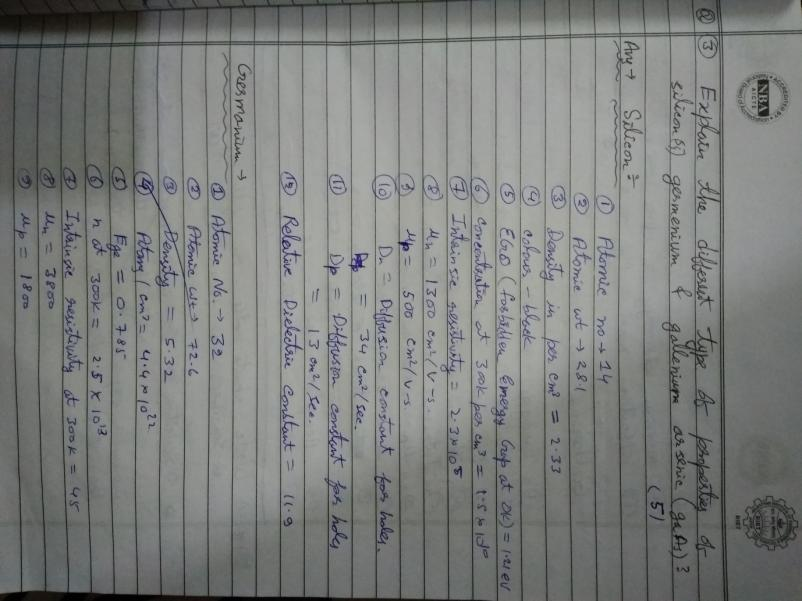 NBA
AICTE
Q ③ Explain the different type of properties of
silicon(si) germenium & gallenium arsenic (gaAs)?
(5)
Ans→ Silicon:-
① Atomic no→14
② Atomic wt → 28.1
③ Density in per cm³ = 2.33
④ colour - black
⑤ EG0 (forbidden Emergy Gap at 0K) = 1.21 eV
⑥ concentration at 300K per cm³ = 1.5 x 10¹⁰
⑦ Intainsic resistivity = 2.3 x 10⁵
⑧ μn = 1300 cm²/V-s.
⑨ μp = 500 cm²/V-s
⑩ Dn = Diffusion constant for holes.
= 34 cm²/sec.
⑪ Dp = Diffusion constant for holes
= 13 cm²/sec.
⑫ Relative Dielectric Constant = 11.9
Germanium →
① Atomic No. → 32
② Atomic wt→ 72.6
③ Density = 5.32
④ Atom/cm³ = 4.4 x 10²²
⑤ Ege = 0.785
⑥ n at 300K = 2.5 x 10¹³
⑦ Intainsic resistivity at 300K = 45
⑧ μn = 3800
⑨ μp = 1800